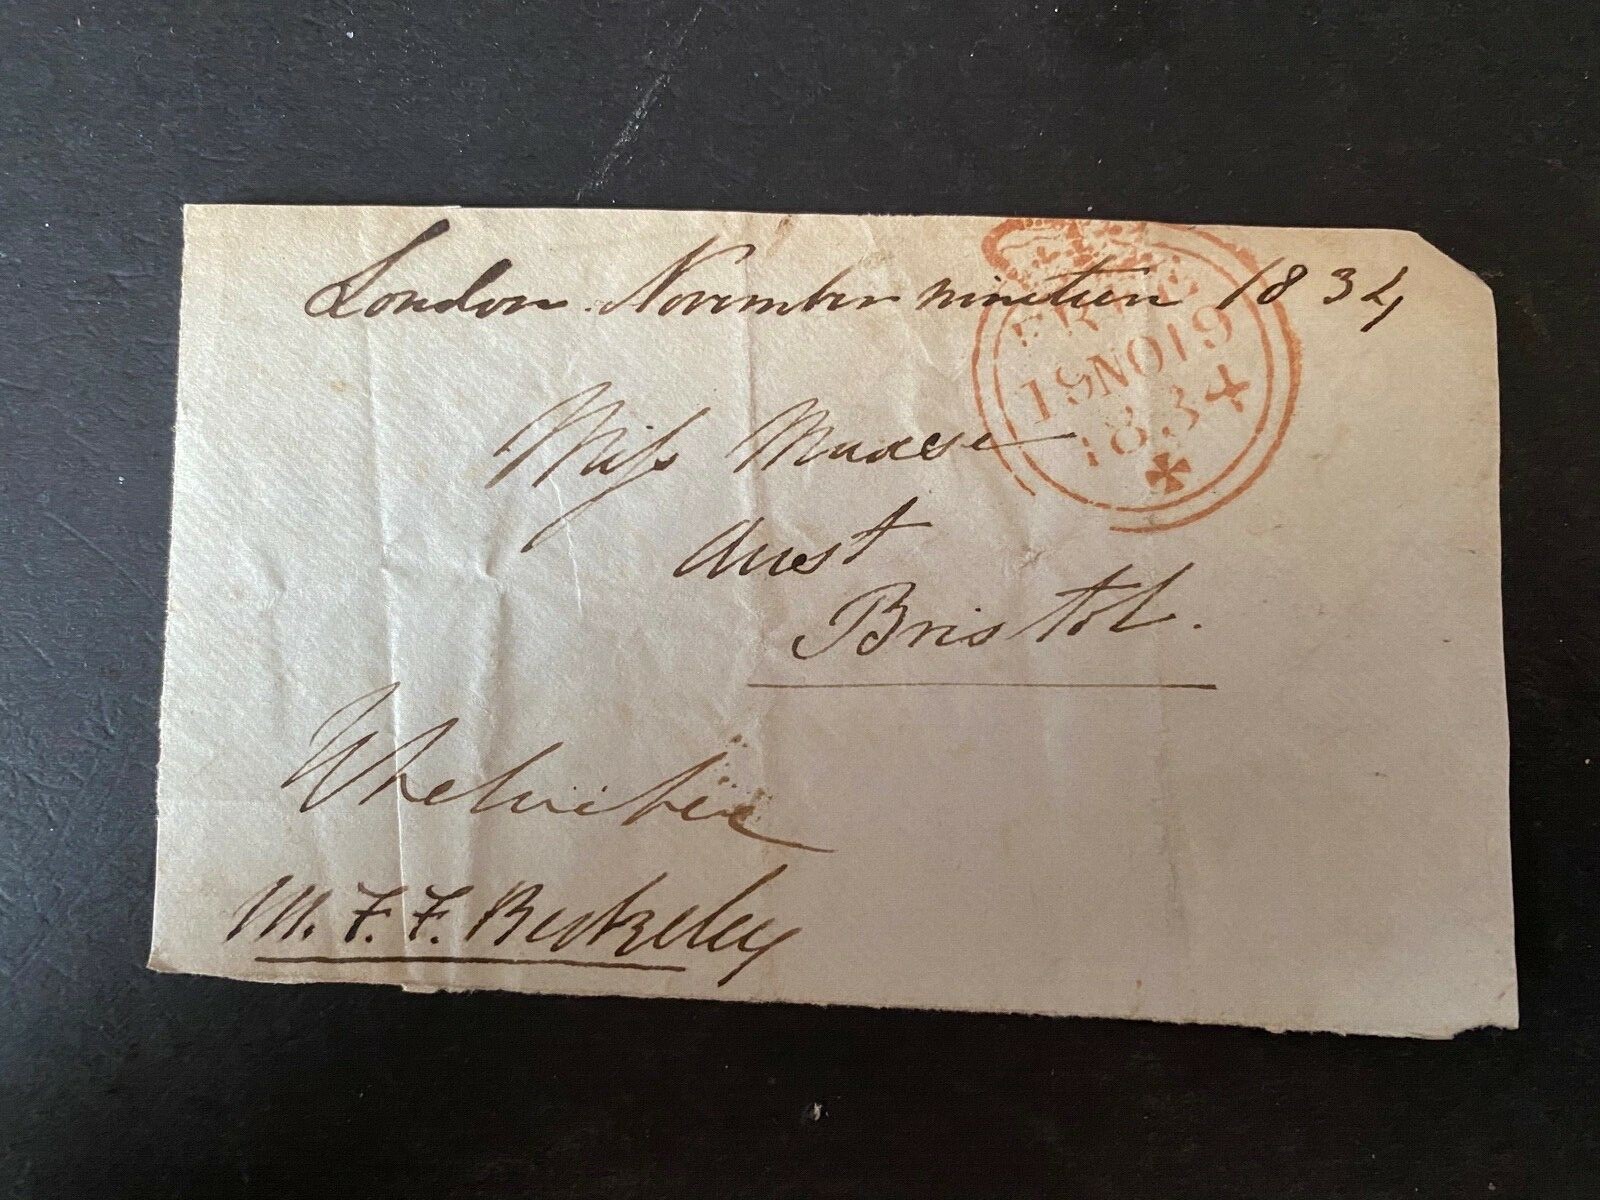 London November nineteen 1834
FREE
19NO19
1834
Miss Maxse
Aust
Bristol.
M. F. F. Berkeley